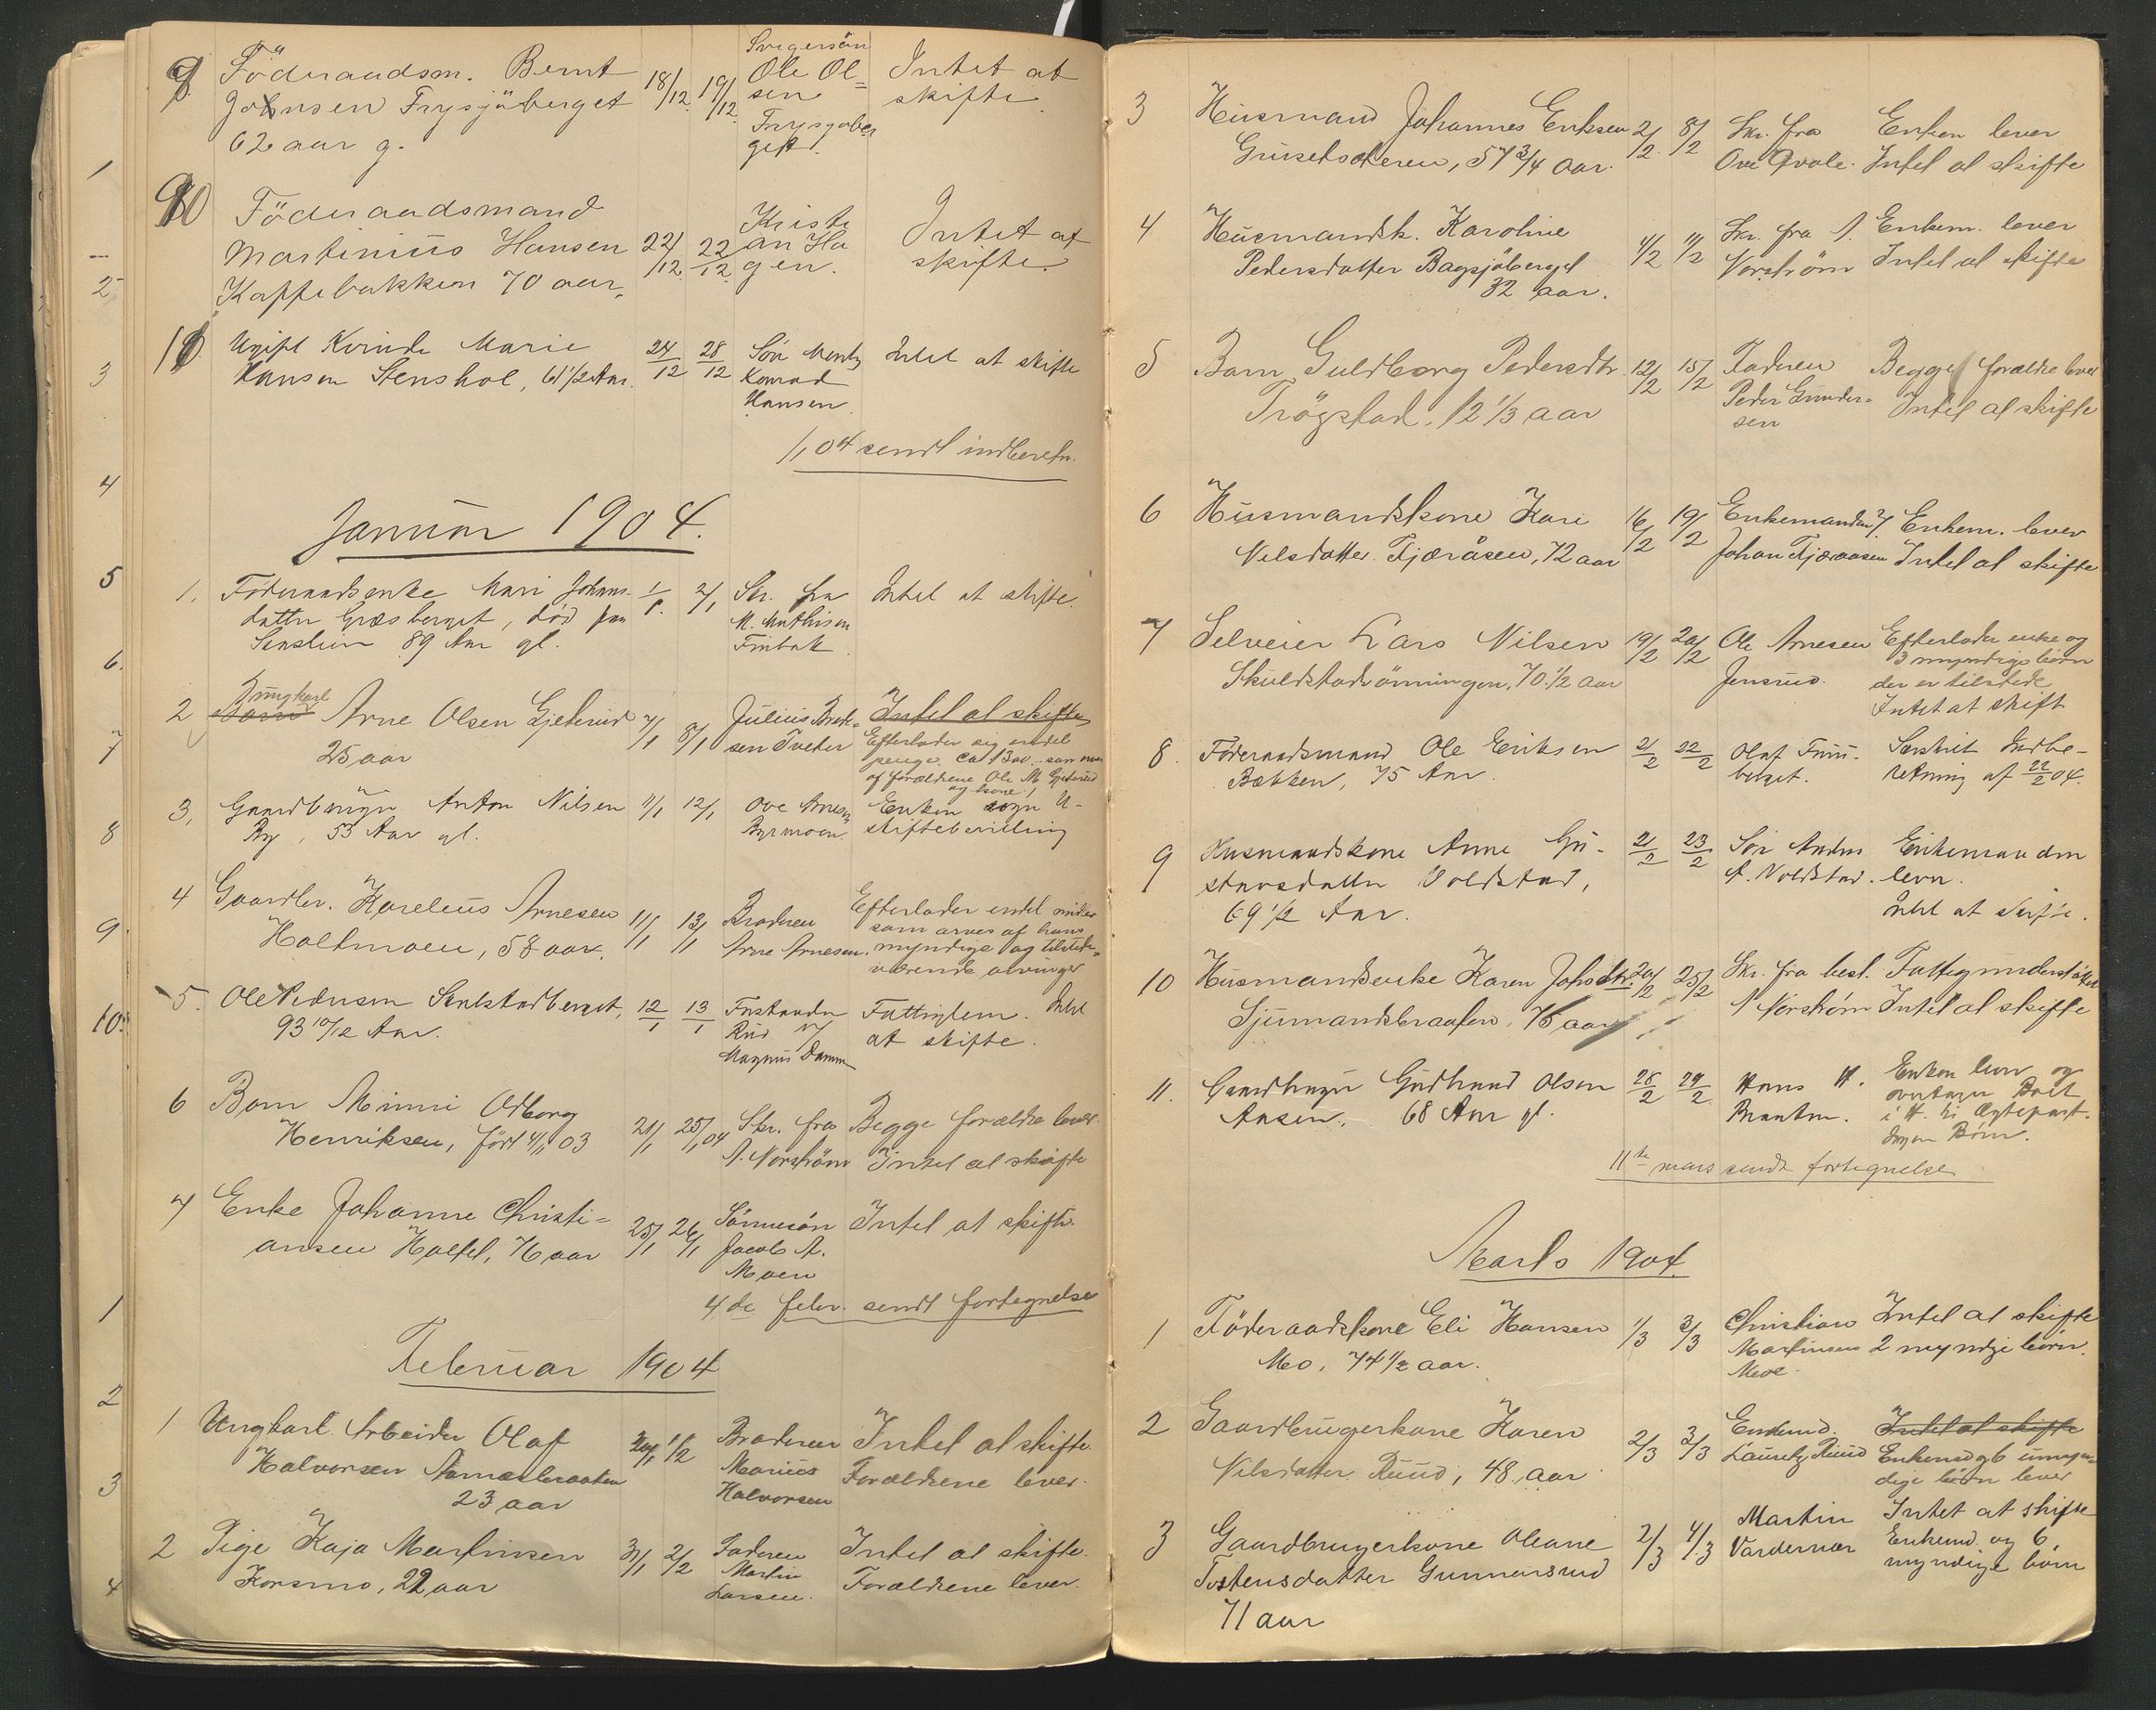 9 Föderaadsm. Bernt
Johnsen Frysjöberget
62 aar g.
18/12 19/12
Svigersön
Ole Ol=
sen
Frysjöber
get.
Intet at
skifte
10 Föderaadsmand
Martinius Hansen
Kaffebakken 70 aar,
22/12 22/12
Kristi
an Ha
gen.
Intet at
skifte.
11 Ugift Kvinde Marie
Hansen Stenshol, 61 1/2 Aar.
24/12 28/12
Søn Mentz
Konrad
Hansen
Intet at skifte
1/1 04 sendt indberetn.
Januar 1904.
1. Föderaadsenke Mari Johans-
datter Græsberget, död paa
89 Aar gl.
1/1. 2/1
Skr. fra
M. Mathisen
Intet at skifte.
2 Ungkarl
Arne Olsen Gjeterud
25 aar
7/1 8/1
Julius Bred-
sen Tveter
Intet at skifte
Efterlader sig endel
penge. ca. 1300.- som arves
af forældrene Ole M. Gjeterud
og kone!
3, Gaardbruger Anton Nilsen
By, 53 Aar gl.
11/1 12/1
Ove Arnesen
Byrmoen
Enken søger U-
skiftebevilling
4 Gaardbr. Karelius Arnesen
Holtmoen, 58 aar.
11/1 13/1
Broderen
Arne Arnesen.
Efterlader endel midler
som arves af hans
myndige og tilstede-
værende arvinger
5. Ole Pedersen Skulstadberget,
93 10/12 Aar.
12/1 13/1
Forstander
Rud v/
Magnus Damm
Fattiglem. Intet
at skifte.
6 Barn Minni Odborg
Henriksen, född 4/11 03
21/1 25/1 04
Skr. fra
A. Norström
Begge forældre lever.
Intet at skifte
7 Enke Johanne Christi=
ansen Holtet, 76 aar
25/1 26/1
Sönnesön
Jacob A.
Moen
Intet at skifte.
4de febr. sendt fortegnelse
Februar 1904
1 Ungkarl Arbeider Olaf
Halvorsen Aarnæsbraaten
23 aar
30/1 1/2
Broderen
Marius
Halvorsen
Intet at skifte.
Forældrene lever.
2 Pige Kaja Martinsen
Korsmo, 22 aar
31/1 2/2
Faderen
Martin
Larsen.
Intet at skifte.
Forældrene lever.
3 Husmand Johannes Eriksen
Grusetsæteren, 57 3/4 aar.
2/2. 8/2
Skr. fra
Ove Qvale.
Enken lever
Intet at skifte
4 Husmandsk. Karoline
Pedersdatter Bagsjöberget
32 aar.
4/2 11/2
Skr. fra A.
Norström
Enkem. lever
Intet at skifte
5 Barn Guldborg Pedersdtr.
Trögstad, 12 1/3 aar
12/2 15/2
Faderen
Peder Gunder=
sen
Begge forældre lever
Intet at skifte
6 Husmandskone Kari
Nilsdatter Fjæråsen, 72 aar
16/2 19/2
Enkemanden
Johan Fjæraasen
Enkem. lever
Intet at skifte
7 Selveier Lars Nilsen
Skulstadrönningen, 70 1/2 aar
19/2 20/2
Ole Arnesen
Jensrud.
Efterlader enke og
3 myndige börn
der er tilstede
Intet at skift
8. Föderaadsmand Ole Eriksen
Bækken, 75 Aar.
21/2 22/2
Olaf Fruu-
berget.
Særskilt Indbe-
retning af 22/2 04.
9 Husmandskone Anne Gu-
stavsdatter Voldstad,
69 1/2 Aar.
21/2 23/2
Søn Anders
A. Voldstad.
Enkemanden
lever.
Intet at skifte.
10 Husmandsenke Karen Johsdtr.
Sjumandsbraaten, 76 aar
20/2 25/2
Skr. fra best.
A Norström
Fattigunderstöttet
Intet at skifte
11. Gaardbruger Gudbrand Olsen
Aasen, 68 Aar gl.
28/2 29/2
Hans H.
Braaten.
Enken lever og
overtager Boet
i H. til Ægtepagt.
Ingen Börn.
11te mars sendt fortegnelse
Marts 1904.
1 Föderaadskone Eli Hansen
Mo, 74 1/2 aar.
1/3 3/3
Christian
Martinsen
Moe.
Intet at skifte
2 myndige börn.
2 Gaardbrugerkone Karen
Nilsdatter Ruud, 48 aar
2/3 3/3
Enkemd.
Lauritz Ruud
Intet at skifte
Enkemd og 6 umyn-
dige börn lever
3 Gaardbrugerkone Oleane
Tostensdatter Gunnarsrud
71 aar
2/3 4/3
Martin
Vardernær
Intet at skifte
Enkemd. og 6
myndige börn